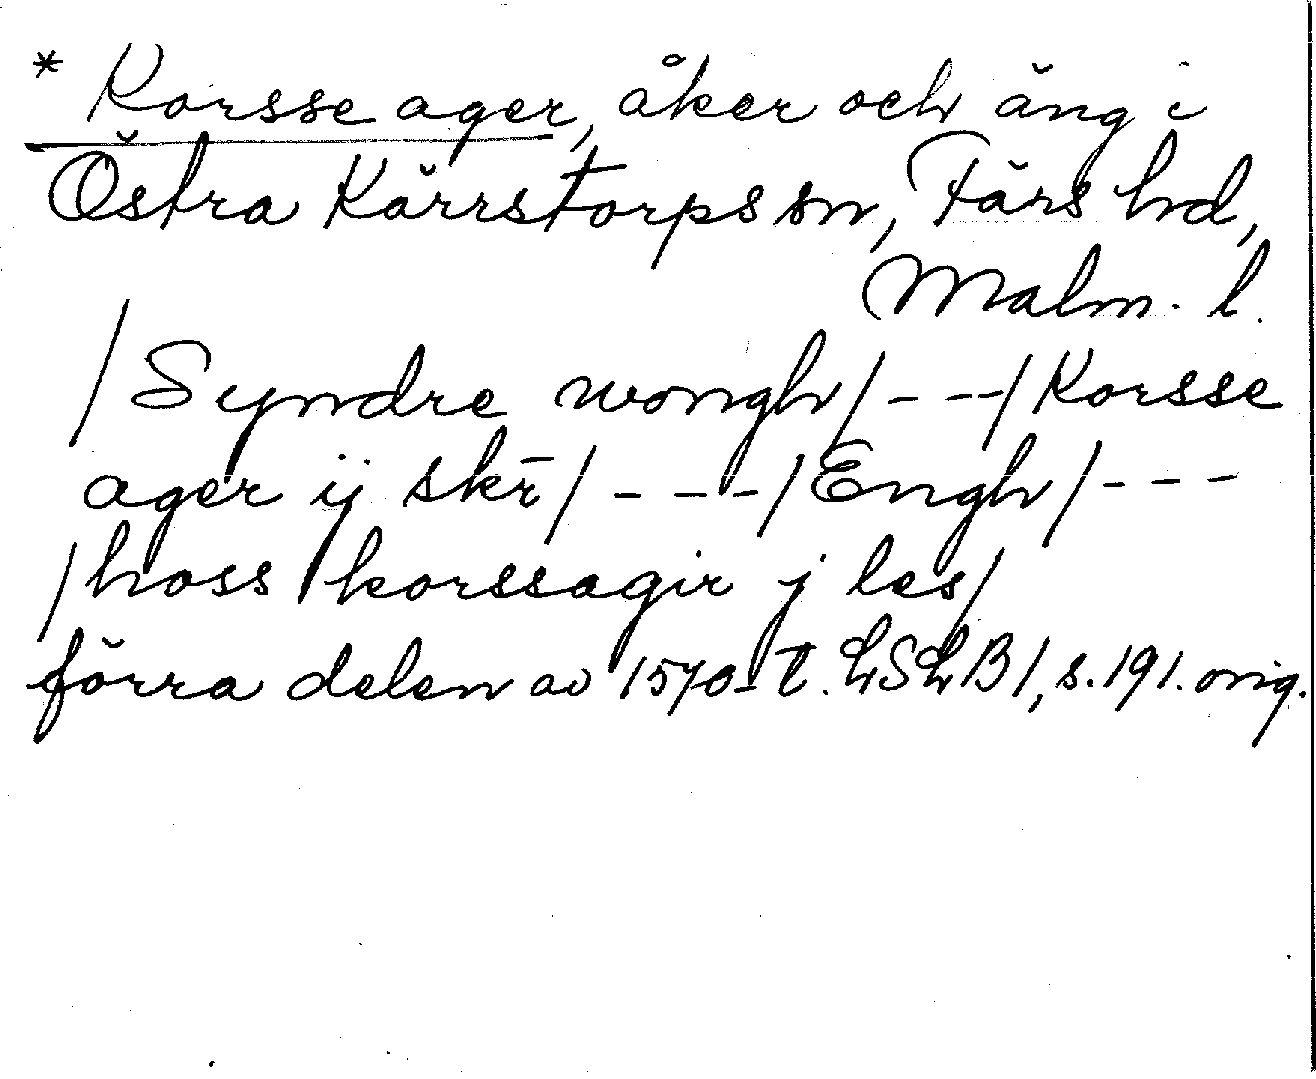 * Korsse ager, åker och äng i
Östra Kärrstorps sn, Färs hd,
Malm. l.
/Syndre wongh/ - - -/Korsse
ager ij skr̄/ - - -/Engh/ - - -
/hoss korssagir j les/
förra delen av 1570-t. LSLB 1, s. 191. orig.